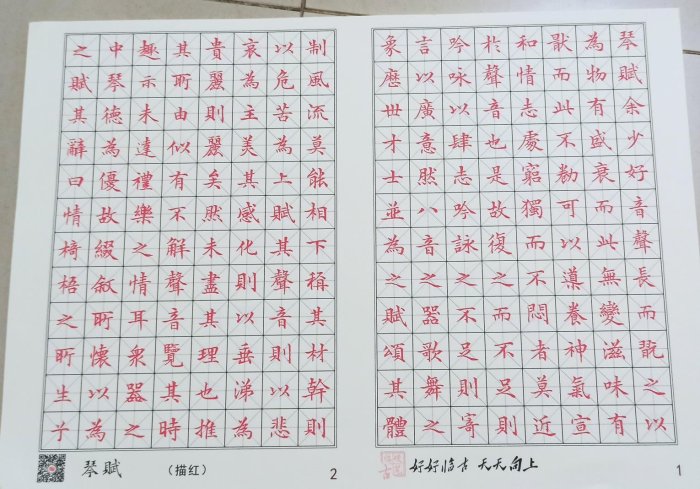 琴賦余少好音聲長而翫之以
為物有盛衰而此無變滋味有
猒而此不勌可以導養神氣宣
和情志處窮獨而不悶者莫近
於聲音也是故復之而不足則
吟咏以肆志吟詠之不足則寄
言以廣意然八音之器歌舞之
象歷世才士並為之賦頌其體
好好临古 天天向上
1
制風流莫能相下稱其材幹則
以危苦為上賦其聲音則以悲
哀為主美其感化則以垂涕為
貴麗則麗矣然未盡其理也推
其所由似有不解聲音覽其時
趣示未達禮樂之情耳衆器之
中琴德為優故綴敘所懷以為
之賦其辭曰情椅梧之所生子
琴賦 （描红）
2